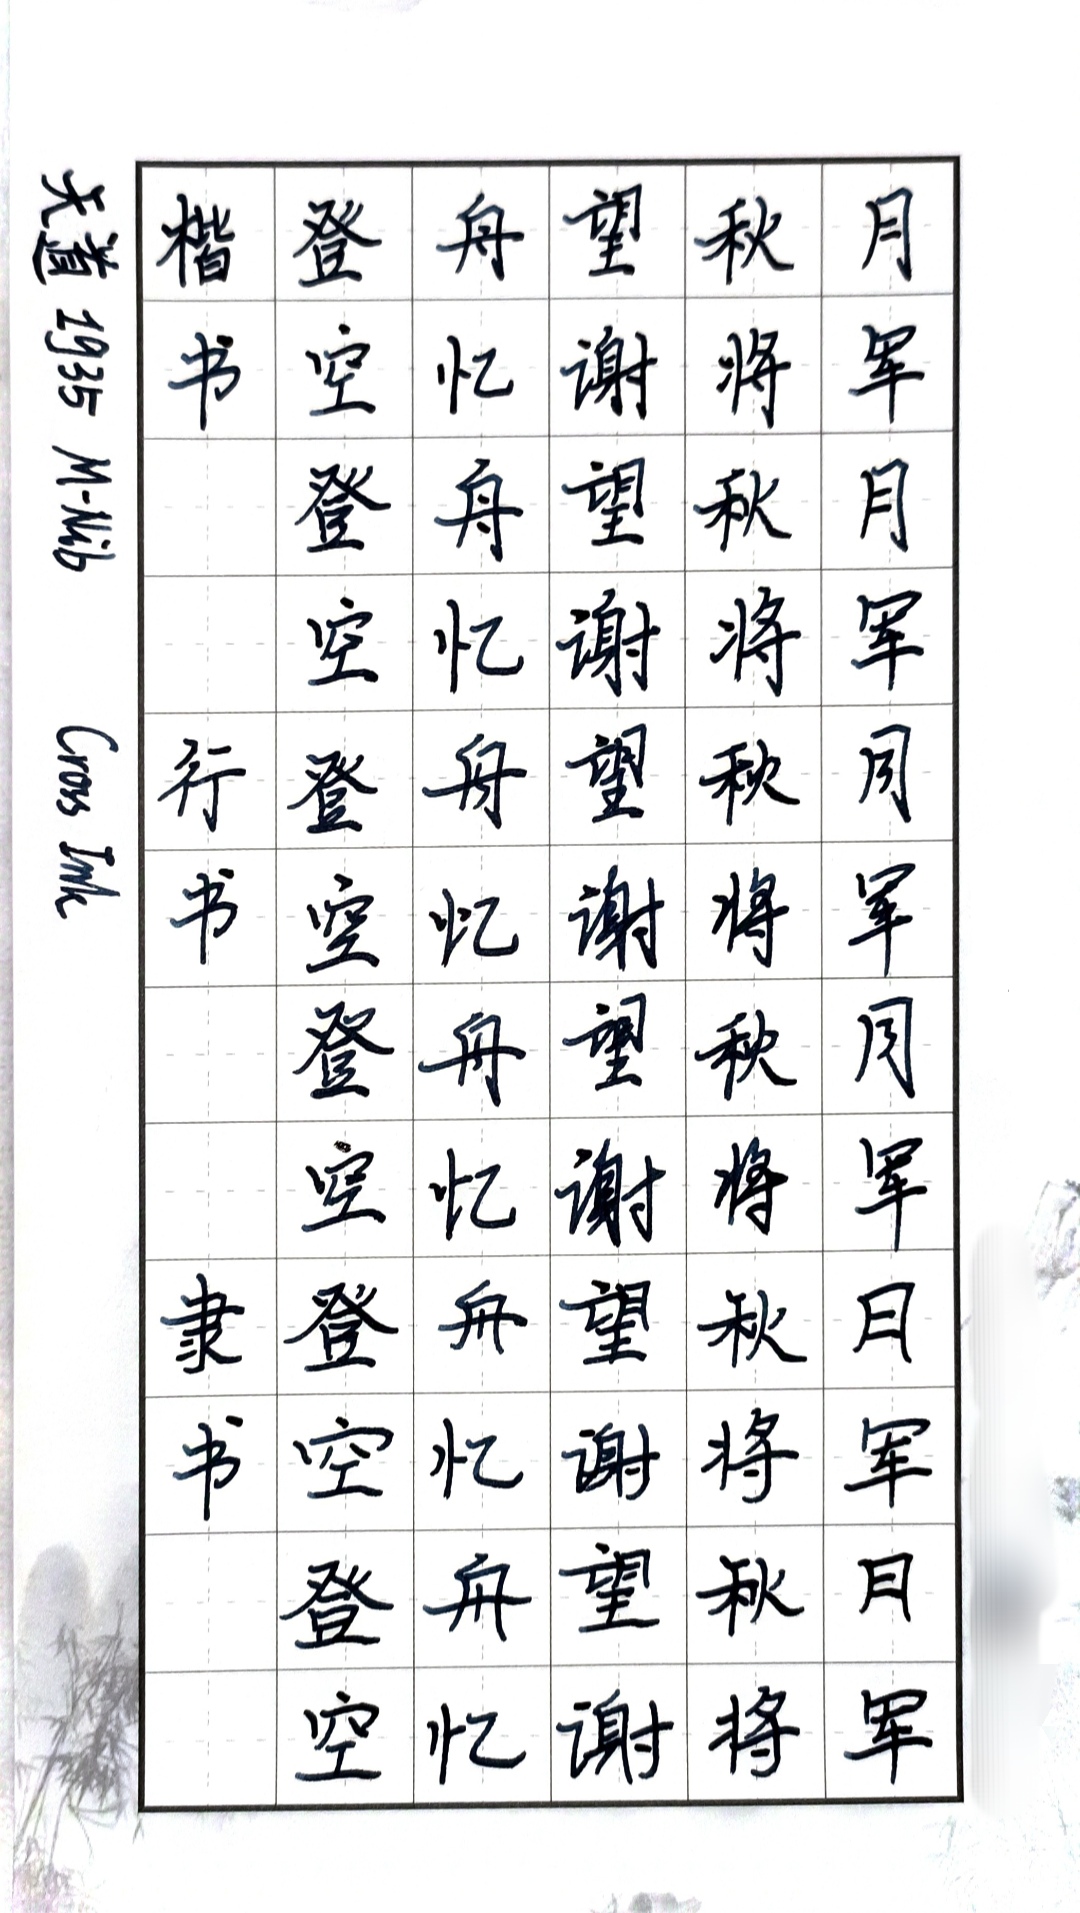 楷登舟望秋月
书空忆谢将军
登舟望秋月
空忆谢将军
行登舟望秋月
书空忆谢将军
登舟望秋月
空忆谢将军
隶登舟望秋月
书空忆谢将军
登舟望秋月
空忆谢将军
道 1935 M-Nib Cross Ink